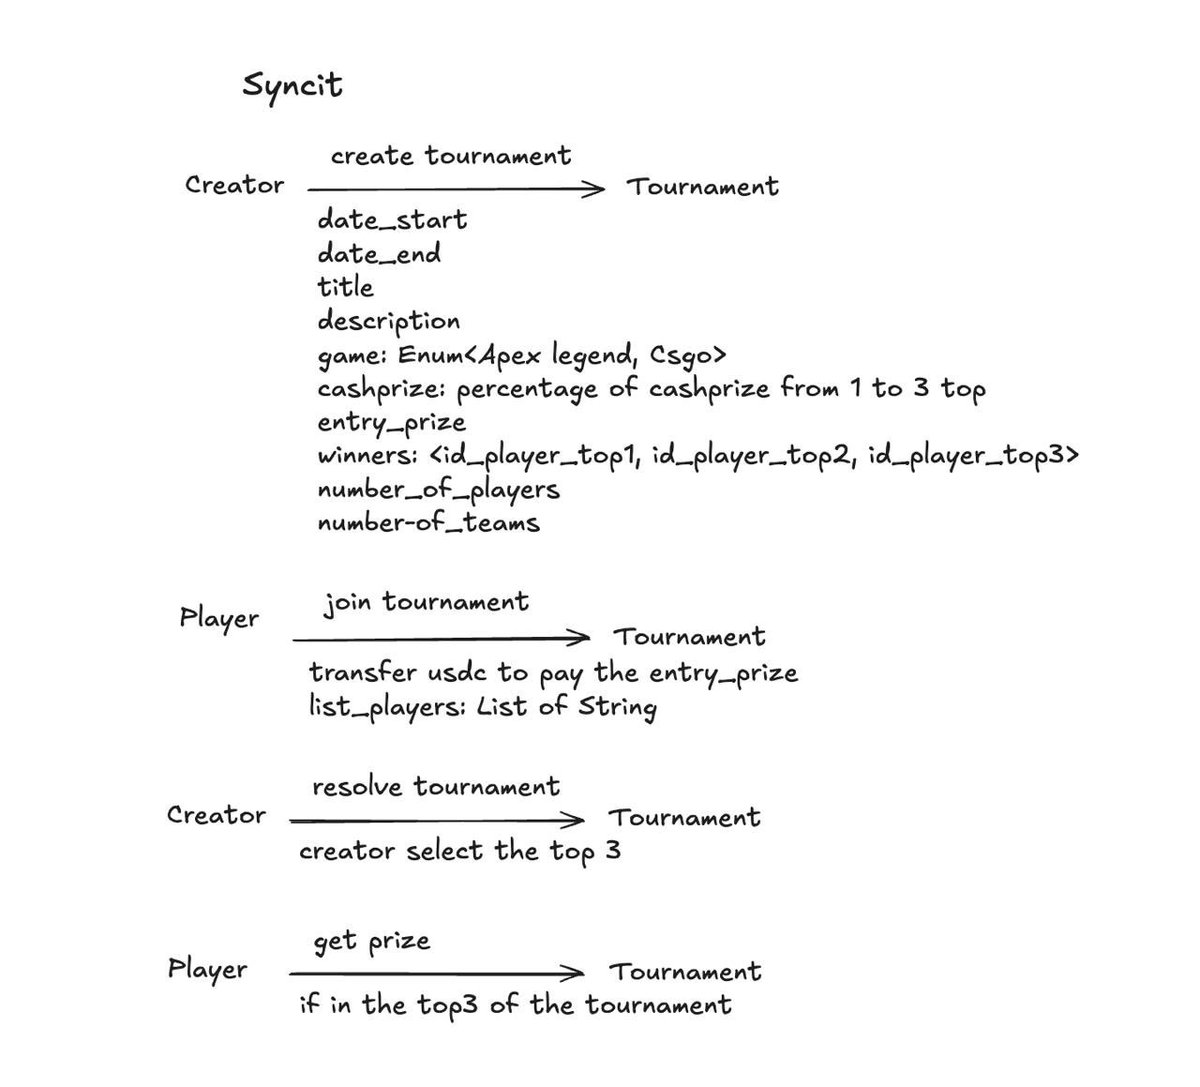 Syncit
create tournament
Creator
Tournament
date_start
date_end
title
description
game: Enum<Apex legend, Csgo>
cashprize: percentage of cashprize from 1 to 3 top
entry_prize
winners: <id_player_top1, id_player_top2, id_player_top3>
number_of_players
number-of_teams
join tournament
Player
Tournament
transfer usdc to pay the entry_prize
list_players: List of String
resolve tournament
Creator
Tournament
creator select the top 3
get prize
Player
Tournament
if in the top3 of the tournament